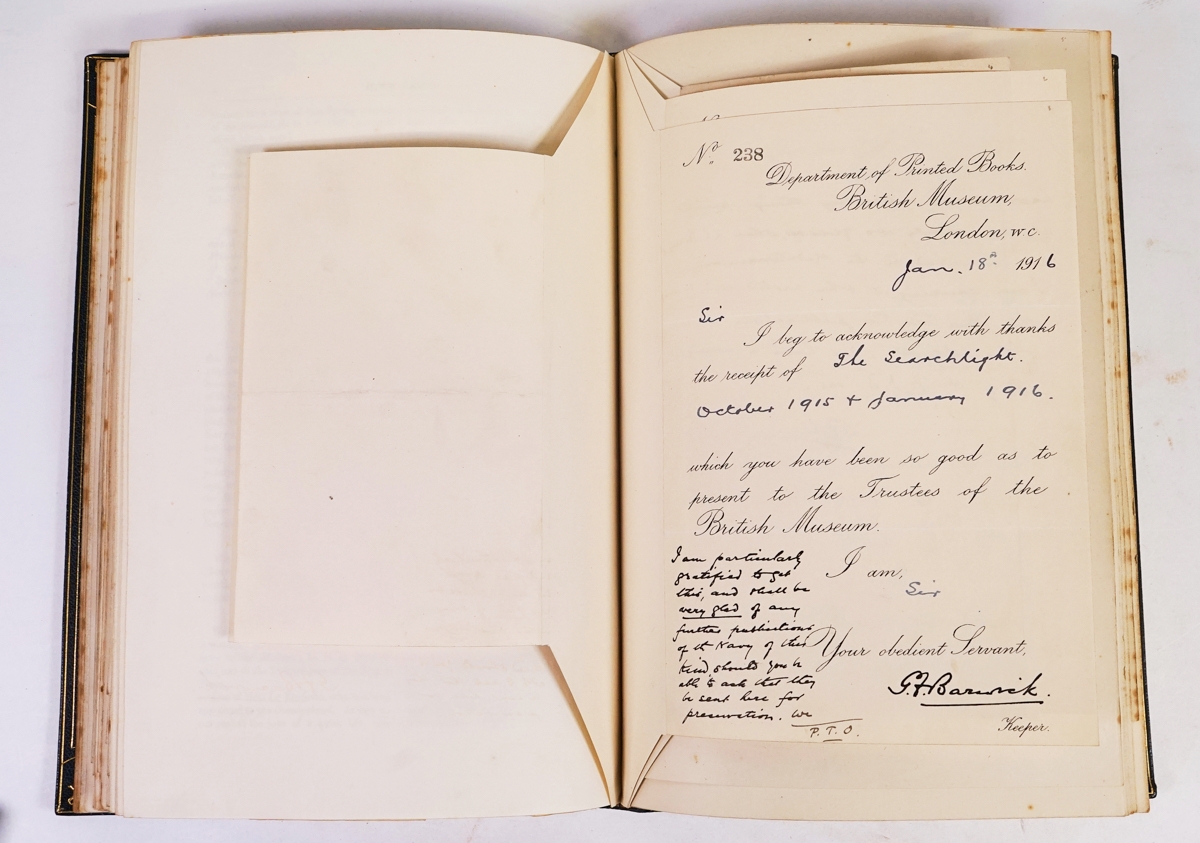 No. 238
Department of Printed Books.
British Museum,
London, W.C.
Jan. 18th 1916
Sir
I beg to acknowledge with thanks
the receipt of The Searchlight.
October 1915 + January 1916.
which you have been so good as to
present to the Trustees of the
British Museum.
I am,
Sir
Your obedient Servant,
G.F. Barwick.
Keeper.
I am particularly
gratified to get
this, and shall be
very glad of any
further publications
of the Navy of this
kind, should you be
able to ask that they
be sent here for
preservation. We
P.T.O.